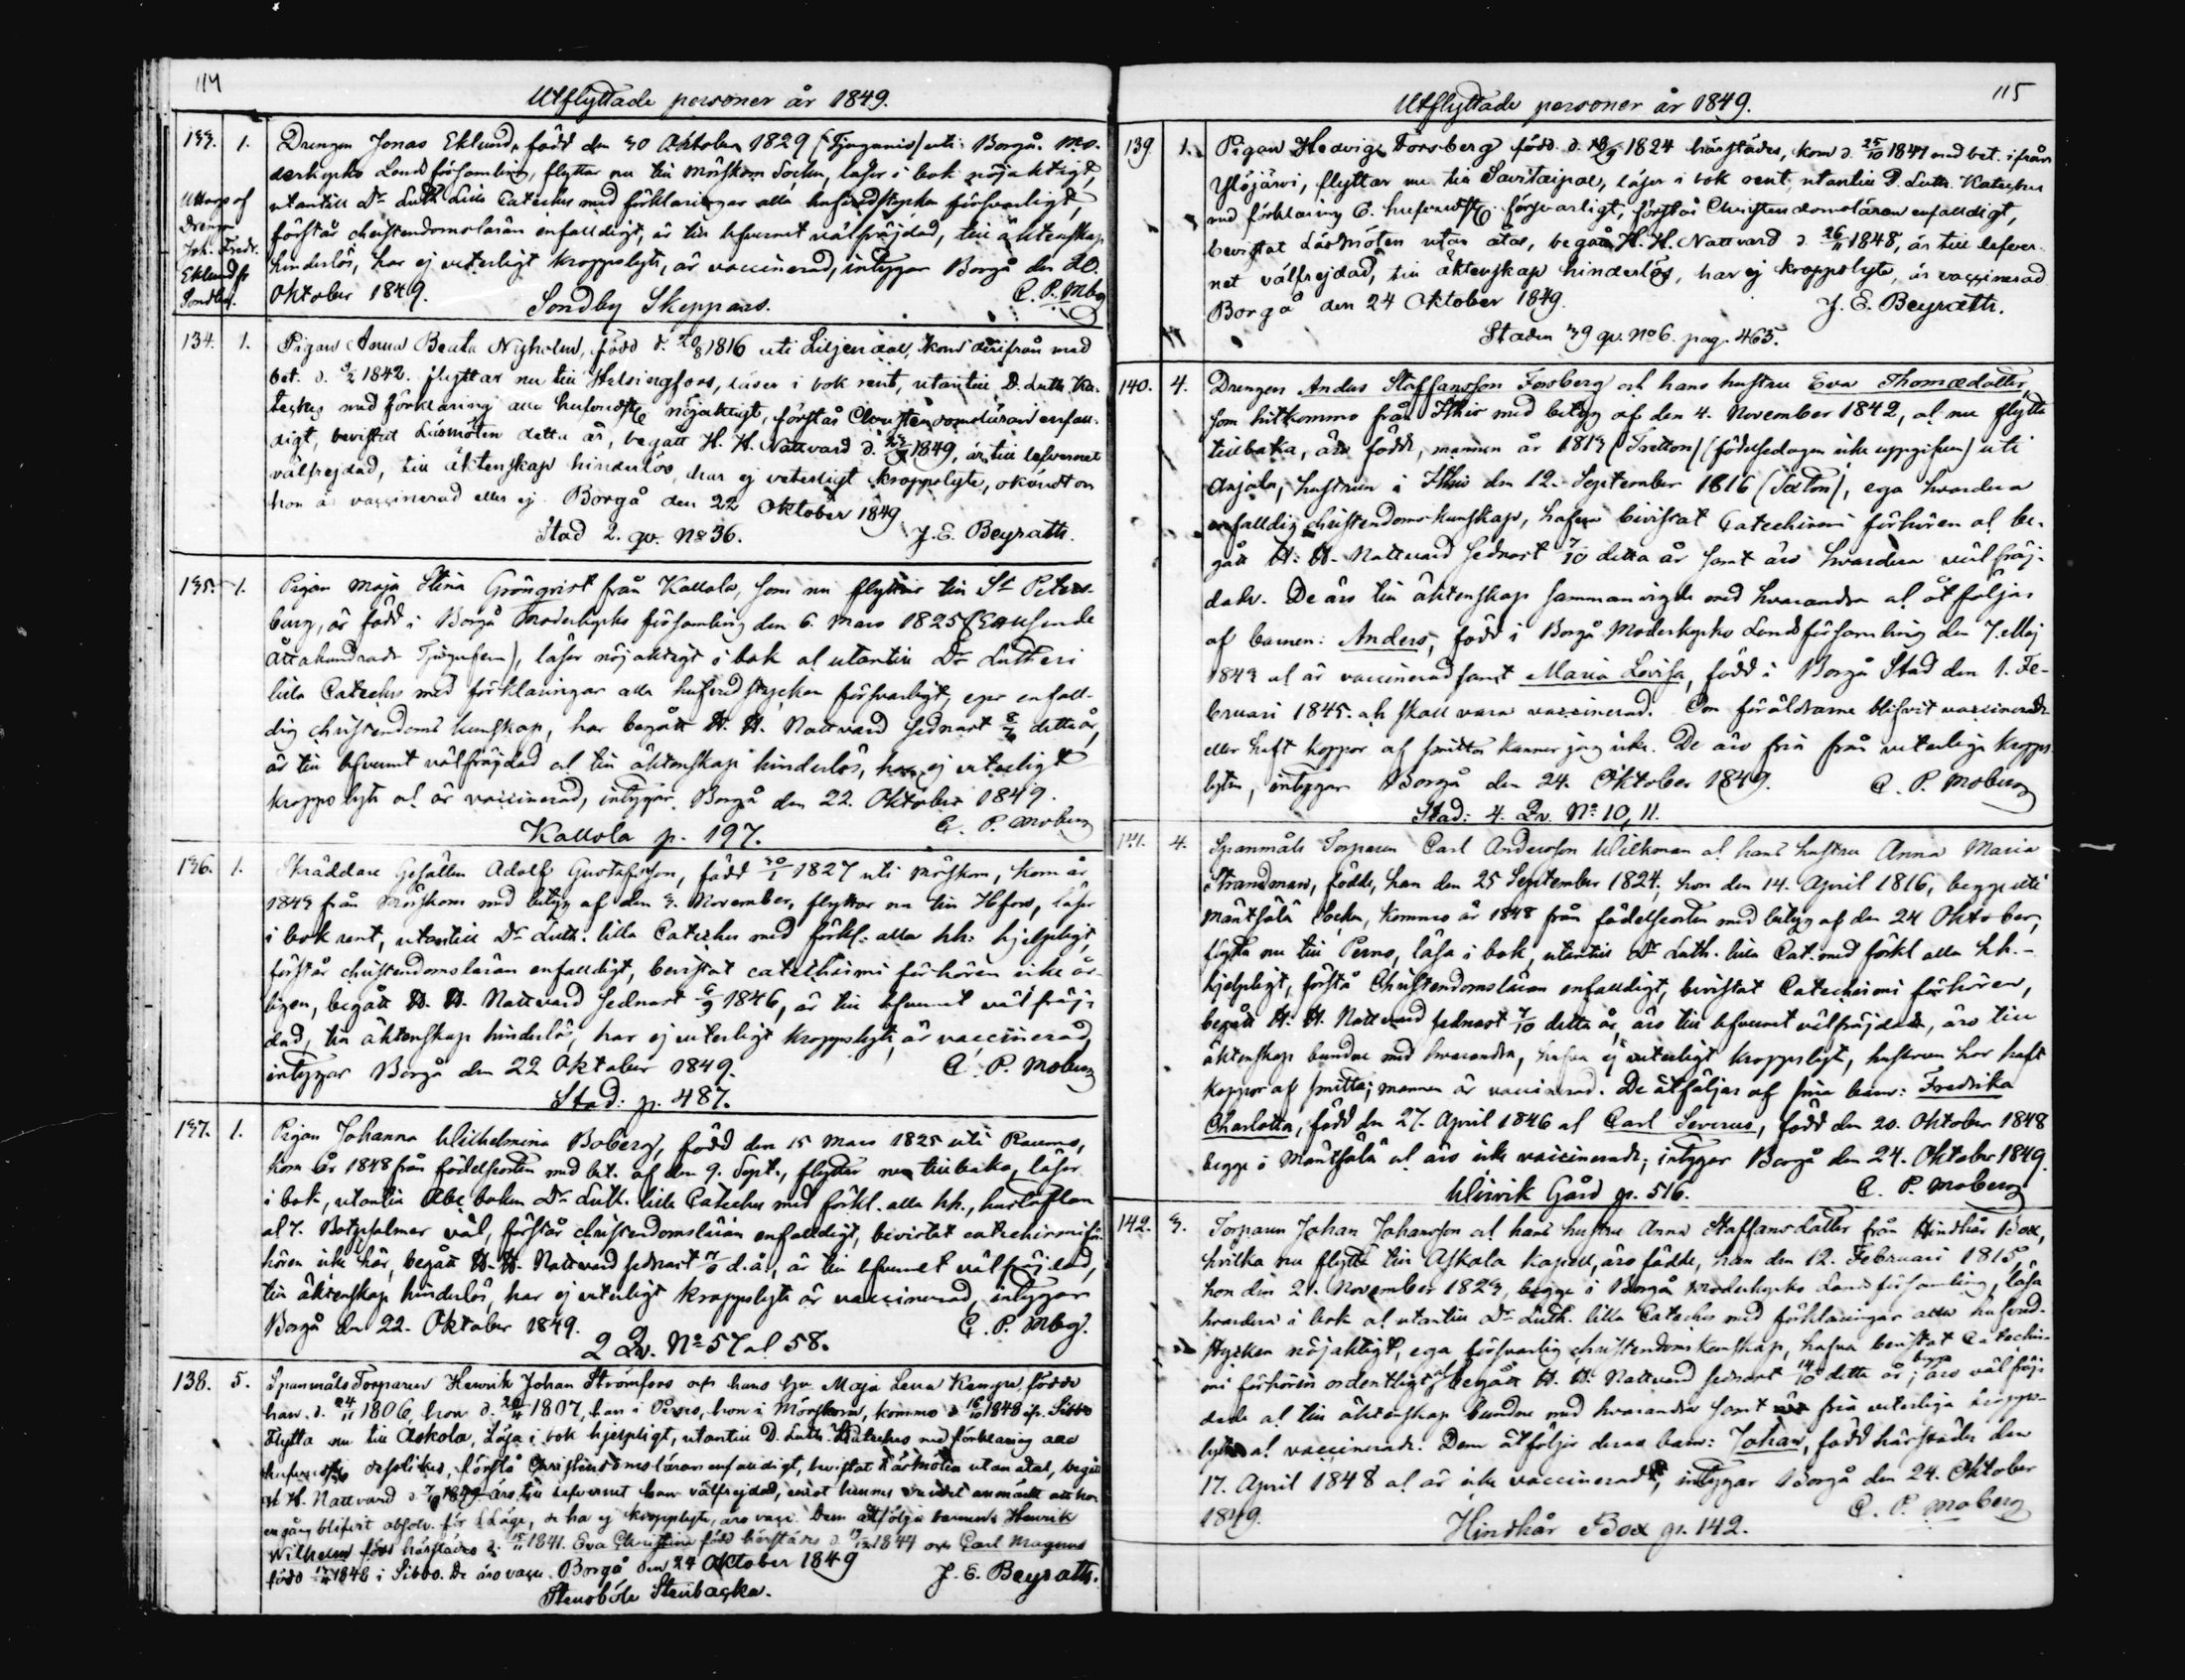 114
Utflyttade personer år 1849.
133. 1. Drengen Jonas Eklund, född den 30 Oktober 1829 (Tjugunio) uti Borgå Mo-
derkyrko Landsförsamling, flyttar nu till Mörskom Socken, läser i bok nöjaktigt,
utantill Dr Luth. Lilla Cateches med förklaringar alla hufvudstycken försvarligt,
förstår christendomsläran enfalldigt, är till lefvernet välfräjdad, till äktenskap
hinderlös, har ej veterligt kroppslyte, är vaccinerad, intygar Borgå den 20.
Oktober 1849. C. P. Mbg
Sondby Skeppars.
Drengen
Joh. Fredr.
Eklund
Sondby.
134. 1. Pigan Anna Beata Nyholm, född d. 20/8 1816 uti Liljendal, kom därifrån med
bet. d. 1842. flyttar nu till Helsingfors, läser i bok rent, utantill D. Luth. Ka-
teches med förklaring alla hufvudst. nöjaktigt, förstår Christendomsläran enfall-
digt, bevistat Läsmöten detta år, begått H. H. Nattvard d. 1849, är till lefvernet
välfrejdad, till äktenskap hinderlös, har ej veterligt kroppslyte, okändt om
hon är vaccinerad eller ej. Borgå den 22 Oktober 1849
Stad 2. qv. No 36. J. E. Beyrath.
135. 1. Pigan Maja Stina Grönqvist från Kallola, som nu flyttar till St Peters-
burg, är född i Borgå Moderkyrko församling den 6. Mars 1825 (Ettusende
Åttahundrade Tjugufem), läser nöjaktigt i bok och utantill Dr Lutheri
lilla Cateches med förklaringar alla hufvudstycken försvarligt, eger enfall-
dig christendoms kunskap, har begått H. H. Nattvard sednast detta år,
är till lefvernet välfräjdad och till äktenskap hinderlös, har ej veterligt
kroppslyte och är vaccinerad, intygar Borgå den 22. Oktober 1849.
Kallola p. 197. C. P. Moberg
136. 1. Skräddare Gesällen Adolf Gustafsson, född 30/1 1827 uti Mörskom, kom år
1843 från Mörskom med betyg af den 3. November, flyttar nu till Hfors, läser
i bok rent, utantill Dr Luth. lilla Cateches med förkl. alla hh. hjelpligt,
förstår christendomsläran enfalldigt, bevistat catechismi förhören icke år-
ligen, begått H. H. Nattvard sednast 6/9 1846, är till lefvernet välfräj-
dad, till äktenskap hinderlös, har ej veterligt kroppslyte, är vaccinerad,
intygar Borgå den 22 Oktober 1849. C. P. Moberg
Stad: p. 487.
137. 1. Pigan Johanna Wilhelmina Boberg, född den 15 Mars 1825 uti Raumo,
kom år 1848 från födelseorten med bet. af den 9. Sept., flyttar nu tillbaka, läser
i bok, utantill Abc boken Dr Luth. lilla Cateches med förkl. alla hh., hustaflan
och 7. Botpsalmer väl, förstår christendomsläran enfalldigt, bevistat catechismiför-
hören icke här, begått H. H. Nattvard sednast d. å., är till lefvernet välfräjdad,
till äktenskap hinderlös, har ej veterligt kroppslyte är vaccinerad, intygar
Borgå den 22. Oktober 1849. C. P. Mbg.
2 Qv. No 57 och 58.
138. 5. Spanmåls Torparen Henrik Johan Strömfors och hans hu. Maja Lena, födde
han d. 24/11 1806, hon d. 1807, han i, hon i Mörskom, kommo d. 16/10 1848 ifr. Sibbo
Flytta nu till Askola, Läsa i bok hjelpligt, utantill D. Luth. Kateches med förklaring alla
förstå Christendomsläran enfalldigt, bevistat Läsmöten utan åtal, begått
H. H. Nattvard d. 1849 äro till lefvernet
en gång blifvit absolv. för, ha ej kroppslyte, äro vacc. Dem åtfölja barnen Henrik
Wilhelm född härstädes d. 1841. Eva Christina född härstädes d. 1844 och Carl Magnus
född 1848 i Sibbo. De äro vacc. Borgå den 24 Oktober 1849 J. E. Beyrath.
Stensböle Stenbacka.
115
Utflyttade personer år 1849.
139. 1. Pigan Hedvig Forsberg född d. 1824 härstädes, kom d. 25/10 1841 med bet. ifrån
Ylöjärvi, flyttar nu till Savitaipal, läser i bok rent, utantill D. Luth. Kateches
med förklaring o. hufvudst. försvarligt, förstår Christendomsläran enfalldigt,
bevistat Läsmöten utan åtal, begått H. H. Nattvard d. 26/11 1848, är till lefver-
net välfrejdad, till äktenskap hinderlös, har ej kroppslyte, är vaccinerad
Borgå den 24 Oktober 1849. J. E. Beyrath.
Staden 39 qv. No 6. pag. 465.
140. 4. Drengen Anders Staffansson Forsberg och hans hustru Eva Thomædotter,
som hitkommo från Ithis med betyg af den 4. November 1842, och nu flytta
tillbaka, äro födde, mannen år 1813 (Tretton) (födelsedagen icke uppgifven) uti
Anjala, hustrun i Ithis den 12. September 1816 (Sexton), ega hvardera
enfalldig christendoms kunskap, hafva bevistat Catechismi förhören och be-
gått H. H. Nattvard sednast 7/10 detta år samt äro hvardera välfräj-
dade. De äro till äktenskap sammanvigde med hvarandra och åtföljas
af barnen: Anders, född i Borgå Moderkyrko Landsförsamling den 7. Maj
1843 och är vaccinerad samt Maria Lovisa, född i Borgå Stad den 1. Fe-
bruari 1845. och skall vara vaccinerad. Om föräldrarne blifvit vaccinerade
eller haft koppor af smitta känner jag icke. De äro fria från veterliga kropps
lyten, intygar Borgå den 24. Oktober 1849. C. P. Moberg
Stad: 4. Qv. No 10, 11.
141. 4. Spanmåls Torparen Carl Andersson Wilkman och hans hustru Anna Maria
Strandman, födde, han den 25 September 1824, hon den 14. April 1816, begge uti
Mäntsälä Socken, kommo år 1848 från födelseorten med betyg af den 24 Oktober,
flytta nu till Perno, läsa i bok, utantill Dr Luth. lilla Cat. med förkl alla hh.
hjelpligt, förstå Christendomsläran enfalldigt, bevistat Catechismi förhören,
begått H. H. Nattvard sednast 7/10 detta år, äro till lefvernet välfräjdade, äro till
äktenskap bundne med hvarandra, hafva ej veterligt kroppslyte, hustrun har haft
koppor af smitta; mannen är vaccinerad. De åtföljas af sina barn: Fredrika
Charlotta, född den 27. April 1846 och Carl Severus, född den 20. Oktober 1848
begge i Mäntsälä och äro icke vaccinerade; intygar Borgå den 24. Oktober 1849.
Gård p. 516. C. P. Moberg
142. 3. Torparen Johan Johansson och hans hustru Anna Staffansdotter från Hindhår Box,
hvilka nu flytta till Askola Kapell, äro födde, han den 12. Februari 1815,
hon den 21. November 1823, begge i Borgå Moderkyrko Landsförsamling, läsa
hvardera i bok och utantill Dr Luth. lilla Cateches med förklaringar alla hufvud-
stycken nöjaktigt, ega försvarlig christendomskunskap, hafva bevistat Catechis-
mi förhören ordentligt och begått H. H. Nattvard sednast 14/10 detta år, begge äro välfräj-
dade och till äktenskap bundne med hvarandra samt fria veterliga kropps-
lyten och vaccinerade. Dem åtföljer deras barn: Johan, född härstädes den
17. April 1848 och är icke vaccinerad, intygar Borgå den 24. Oktober
1849. C. P. Moberg
Hindhår Box p. 142.